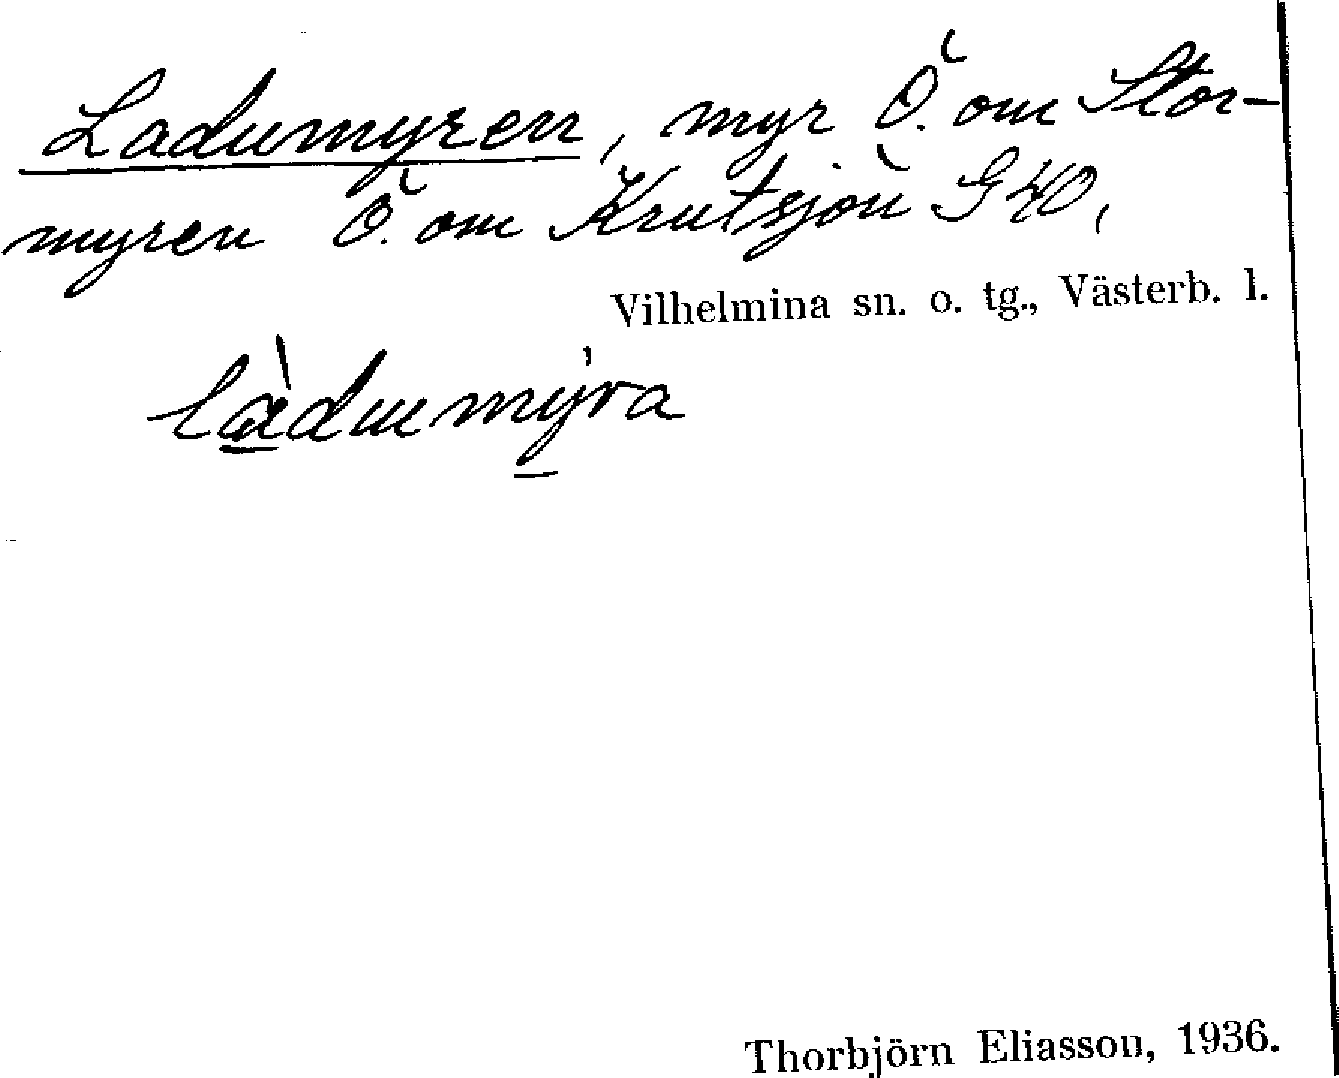 Ladumyren, myr Ö. om Stor-
myren Ö. om Krutsjön G40,
Vilhelmina sn. o. tg., Västerb. l.
làdumy̍ra
Thorbjörn Eliasson, 1936.